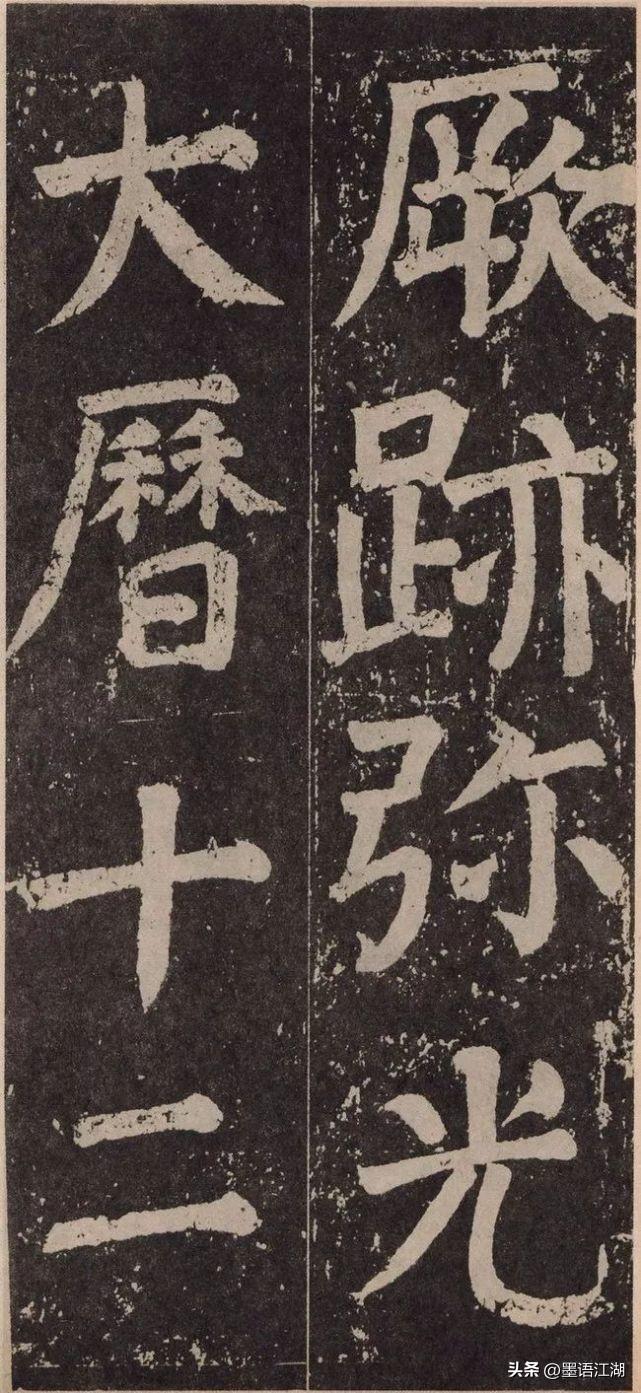 厥跡弥光
大曆十二
头条 @墨语江湖